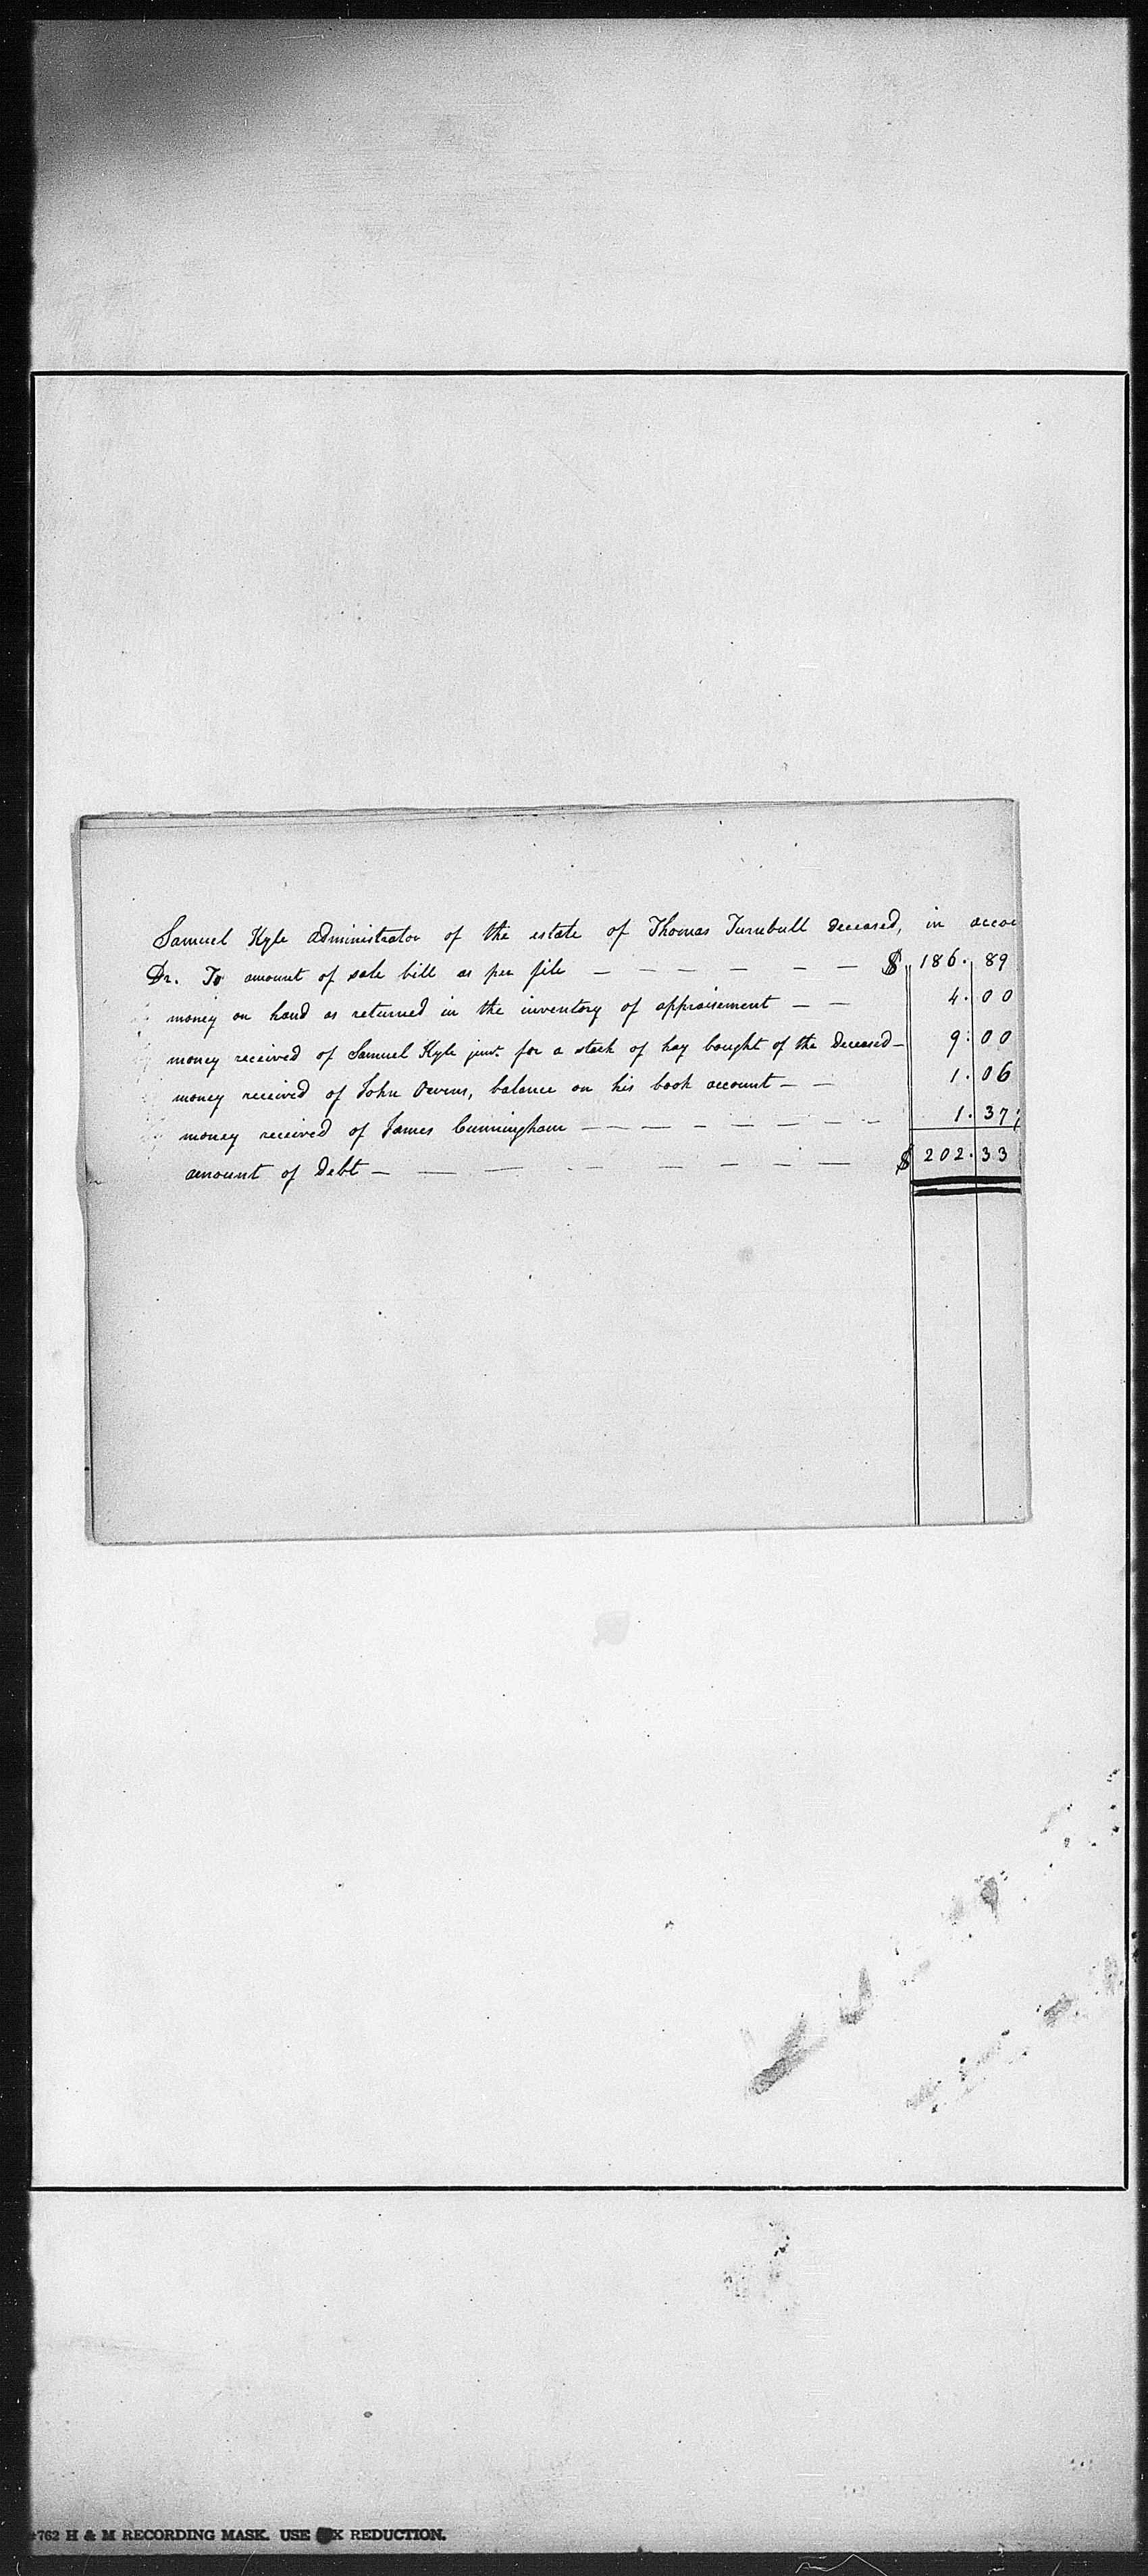 Samuel Kyle administrator of the estate of Thomas Turnbull deceased, in accou
Dr. To amount of sale bill as per file — — — — — — $ 186. 89
money on hand as returned in the inventory of appraisement — — 4. 00
money received of Samuel Kyle junr. for a stack of hay bought of the deceased — 9. 00
money received of John Owens, balance on his book account — — 1. 06
money received of James Cunningham — — — — — — — — 1. 37
amount of Debt — — — — — — — — $ 202. 33
762 H & M RECORDING MASK. USE X REDUCTION.